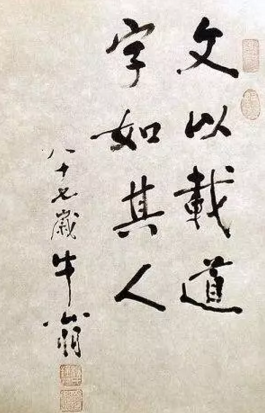 文以載道
字如其人
八十七歲牛翁